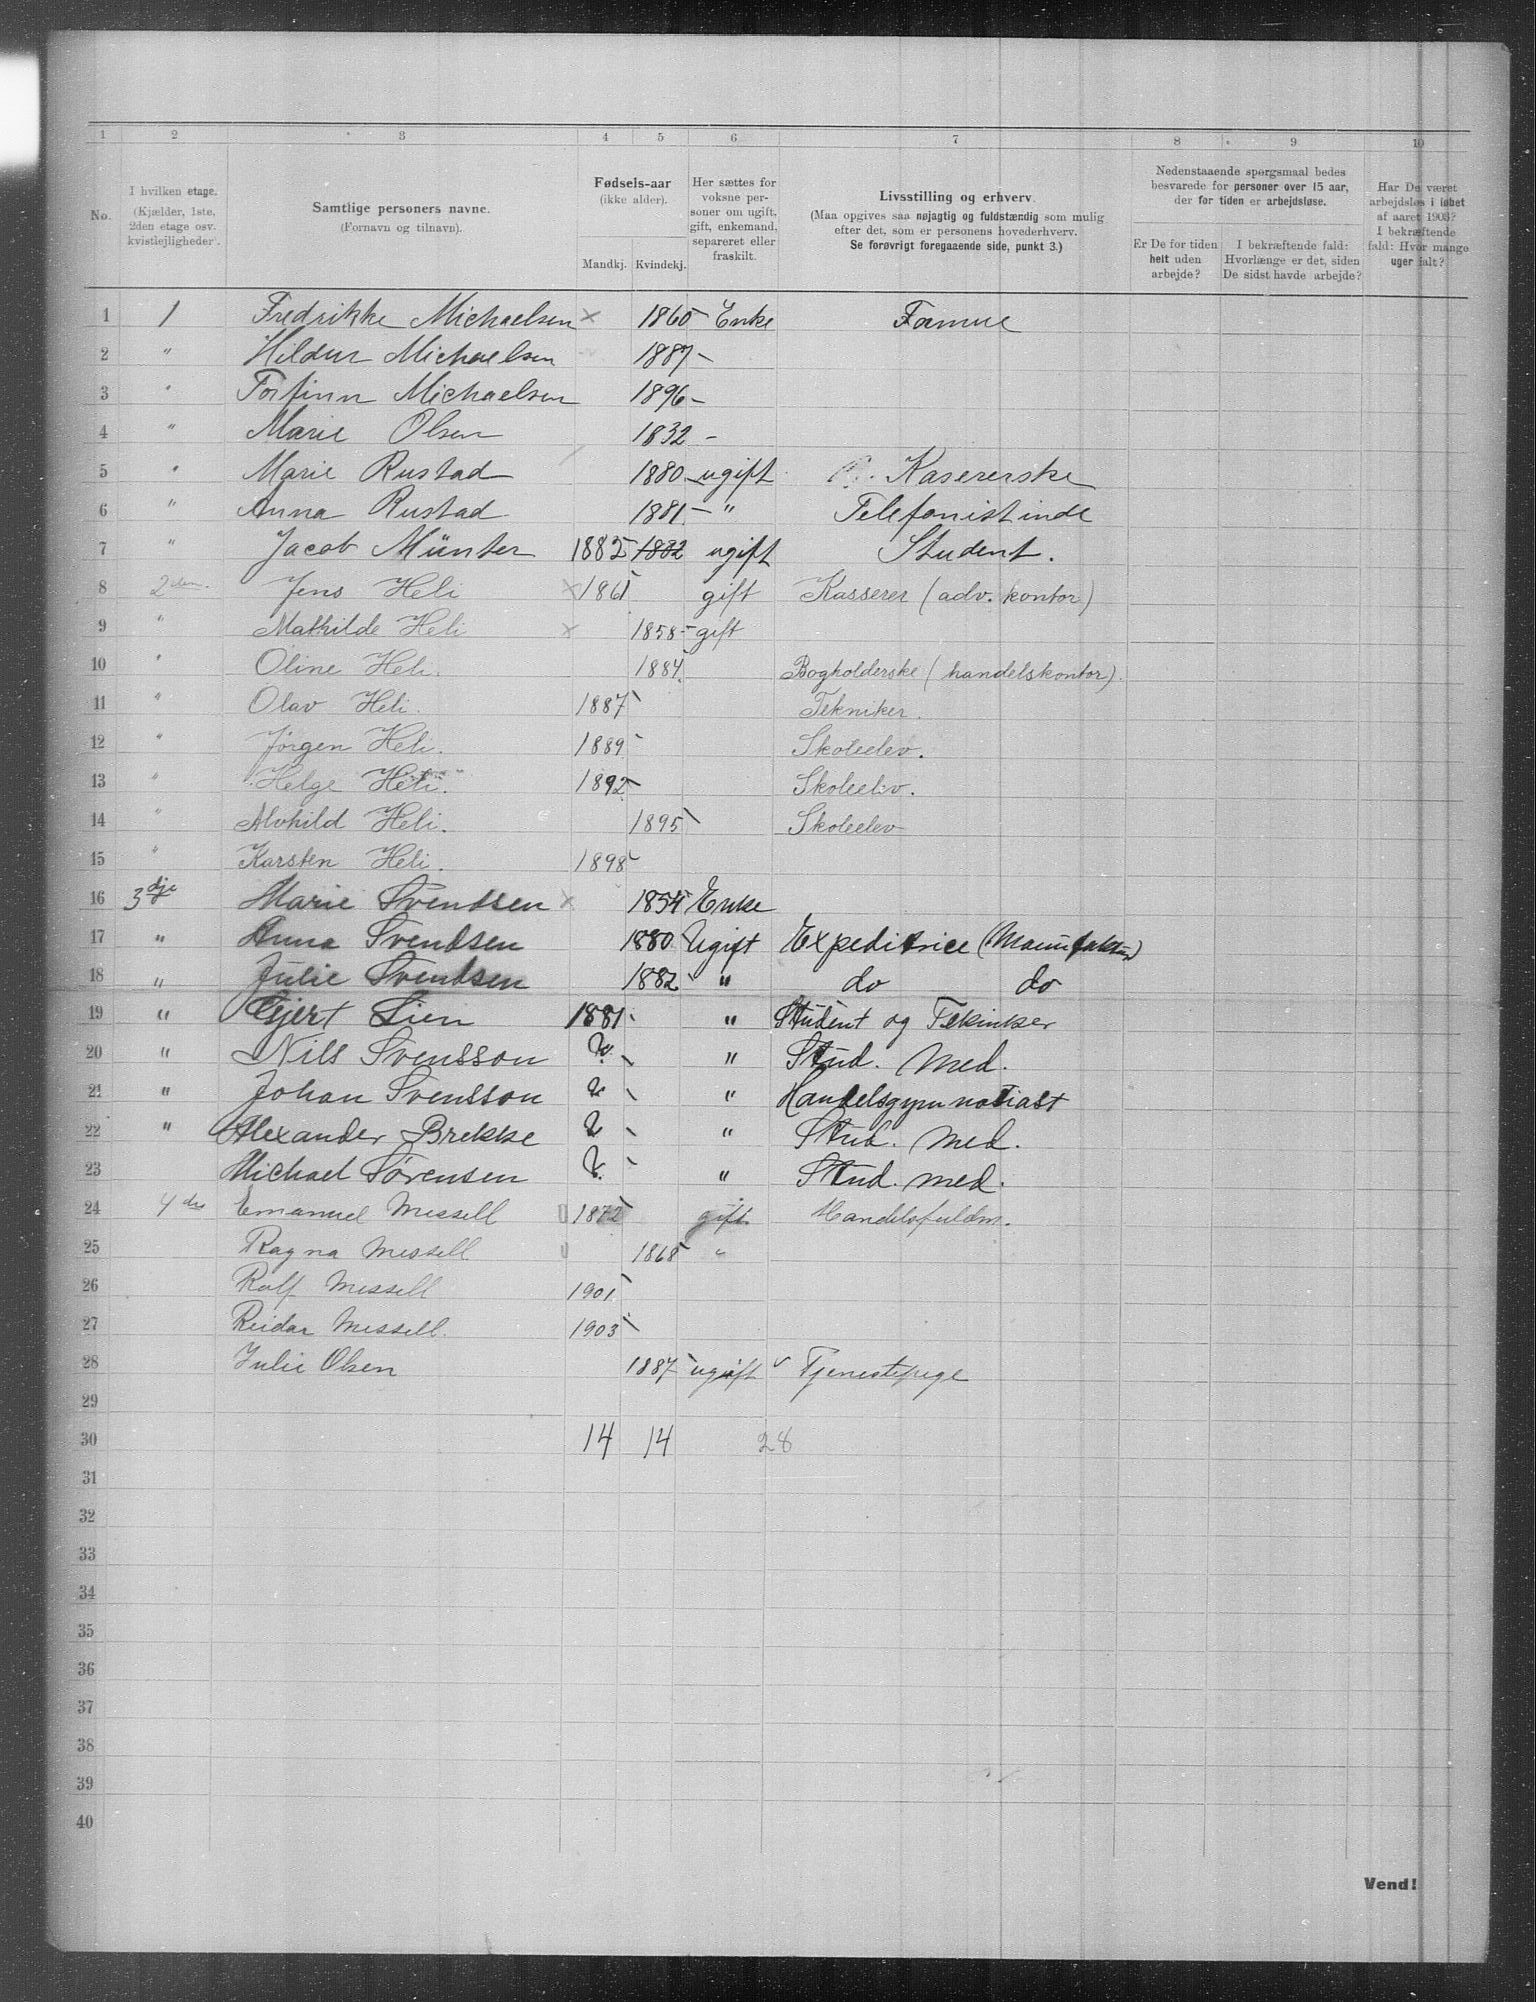 1 2 3 4 5 6 7 8 9 10
No.
I hvilken etage.
(Kjælder, 1ste,
2den etage osv.
kvistlejligheder).
Samtlige personers navne.
(Fornavn og tilnavn).
Fødsels-aar
(ikke alder).
Mandkj. Kvindekj.
Her sættes for
voksne per-
soner om ugift,
gift, enkemand,
separeret eller
fraskilt.
Livsstilling og erhverv.
(Maa opgives saa nøjagtig og fuldstændig som mulig
efter det, som er personens hovederhverv.
Se forøvrigt foregaaende side, punkt 3.)
Nedenstaaende spørgsmaal bedes
besvarede for personer over 15 aar,
der for tiden er arbejdsløse.
Er De for tiden
helt uden
arbejde?
I bekræftende fald:
Hvorlænge er det, siden
De sidst havde arbejde?
Har De været
arbejdsløs i løbet
af aaret 1903?
I bekræftende
fald: Hvor mange
uger ialt?
1 1 Fredrikke Michaelsen × 1860 Enke Formue
2 " Hildur Michaelsen 1887 –
3 " Torfinn Michaelsen 1896 –
4 " Marie Olsen 1832 –
5 " Marie Rustad 1880 – ugift Kasererske
6 " Anna Rustad 1881 – " Telefonistinde
7 " Jacob Münter 1882 1882 ugift Student.
8 2den. Jens Heli × 1861 gift Kasserer (adv. kontor)
9 " Mathilde Heli × 1858 – gift
10 " Oline Heli. 1884 Bogholderske (handelskontor).
11 " Olav Heli. 1887 Tekniker.
12 " Jørgen Heli. 1889 Skoleelev.
13 " Helge Heli. 1892 Skoleelev.
14 " Alvhild Heli. 1895 Skoleelev
15 " Karsten Heli. 1898
16 3dje Marie Svendsen × 1854 Enke
17 " Anna Svendsen 1880 Ugift Expeditrice (Manufaktur)
18 " Julie Svendsen 1882 " do do
19 " Gjert Lien 1881 " Student og Tekinker
20 " Nils Svensson ? " Stud. Med.
21 " Johan Svensson ? " Handelsgymnasiast
22 " Alexander Brekke ? " Stud. Med.
23 Michael Sørensen ? " Stud. med.
24 4de Emanuel Messell 1872 gift Handelsfuldm.
25 Ragna Messell 1868 "
26 Rolf Messell 1901
27 Reidar Messell. 1903
28 Julie Olsen 1887 ugift Tjenestepige
29
30 14 14 28
31
32
33
34
35
36
37
38
39
40
Vend!